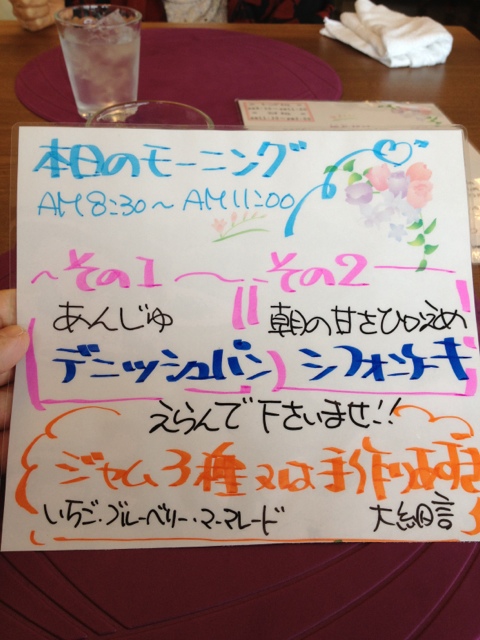 本日のモーニング
AM8:30〜AM11:00
〜その1〜 その2
あんじゅ 朝の甘さひかえめ
デニッシュパン シフォンケーキ
えらんで下さいませ!!
ジャム3種又は手作りあずき
いちご・ブルーベリー・マーマレード 大納言